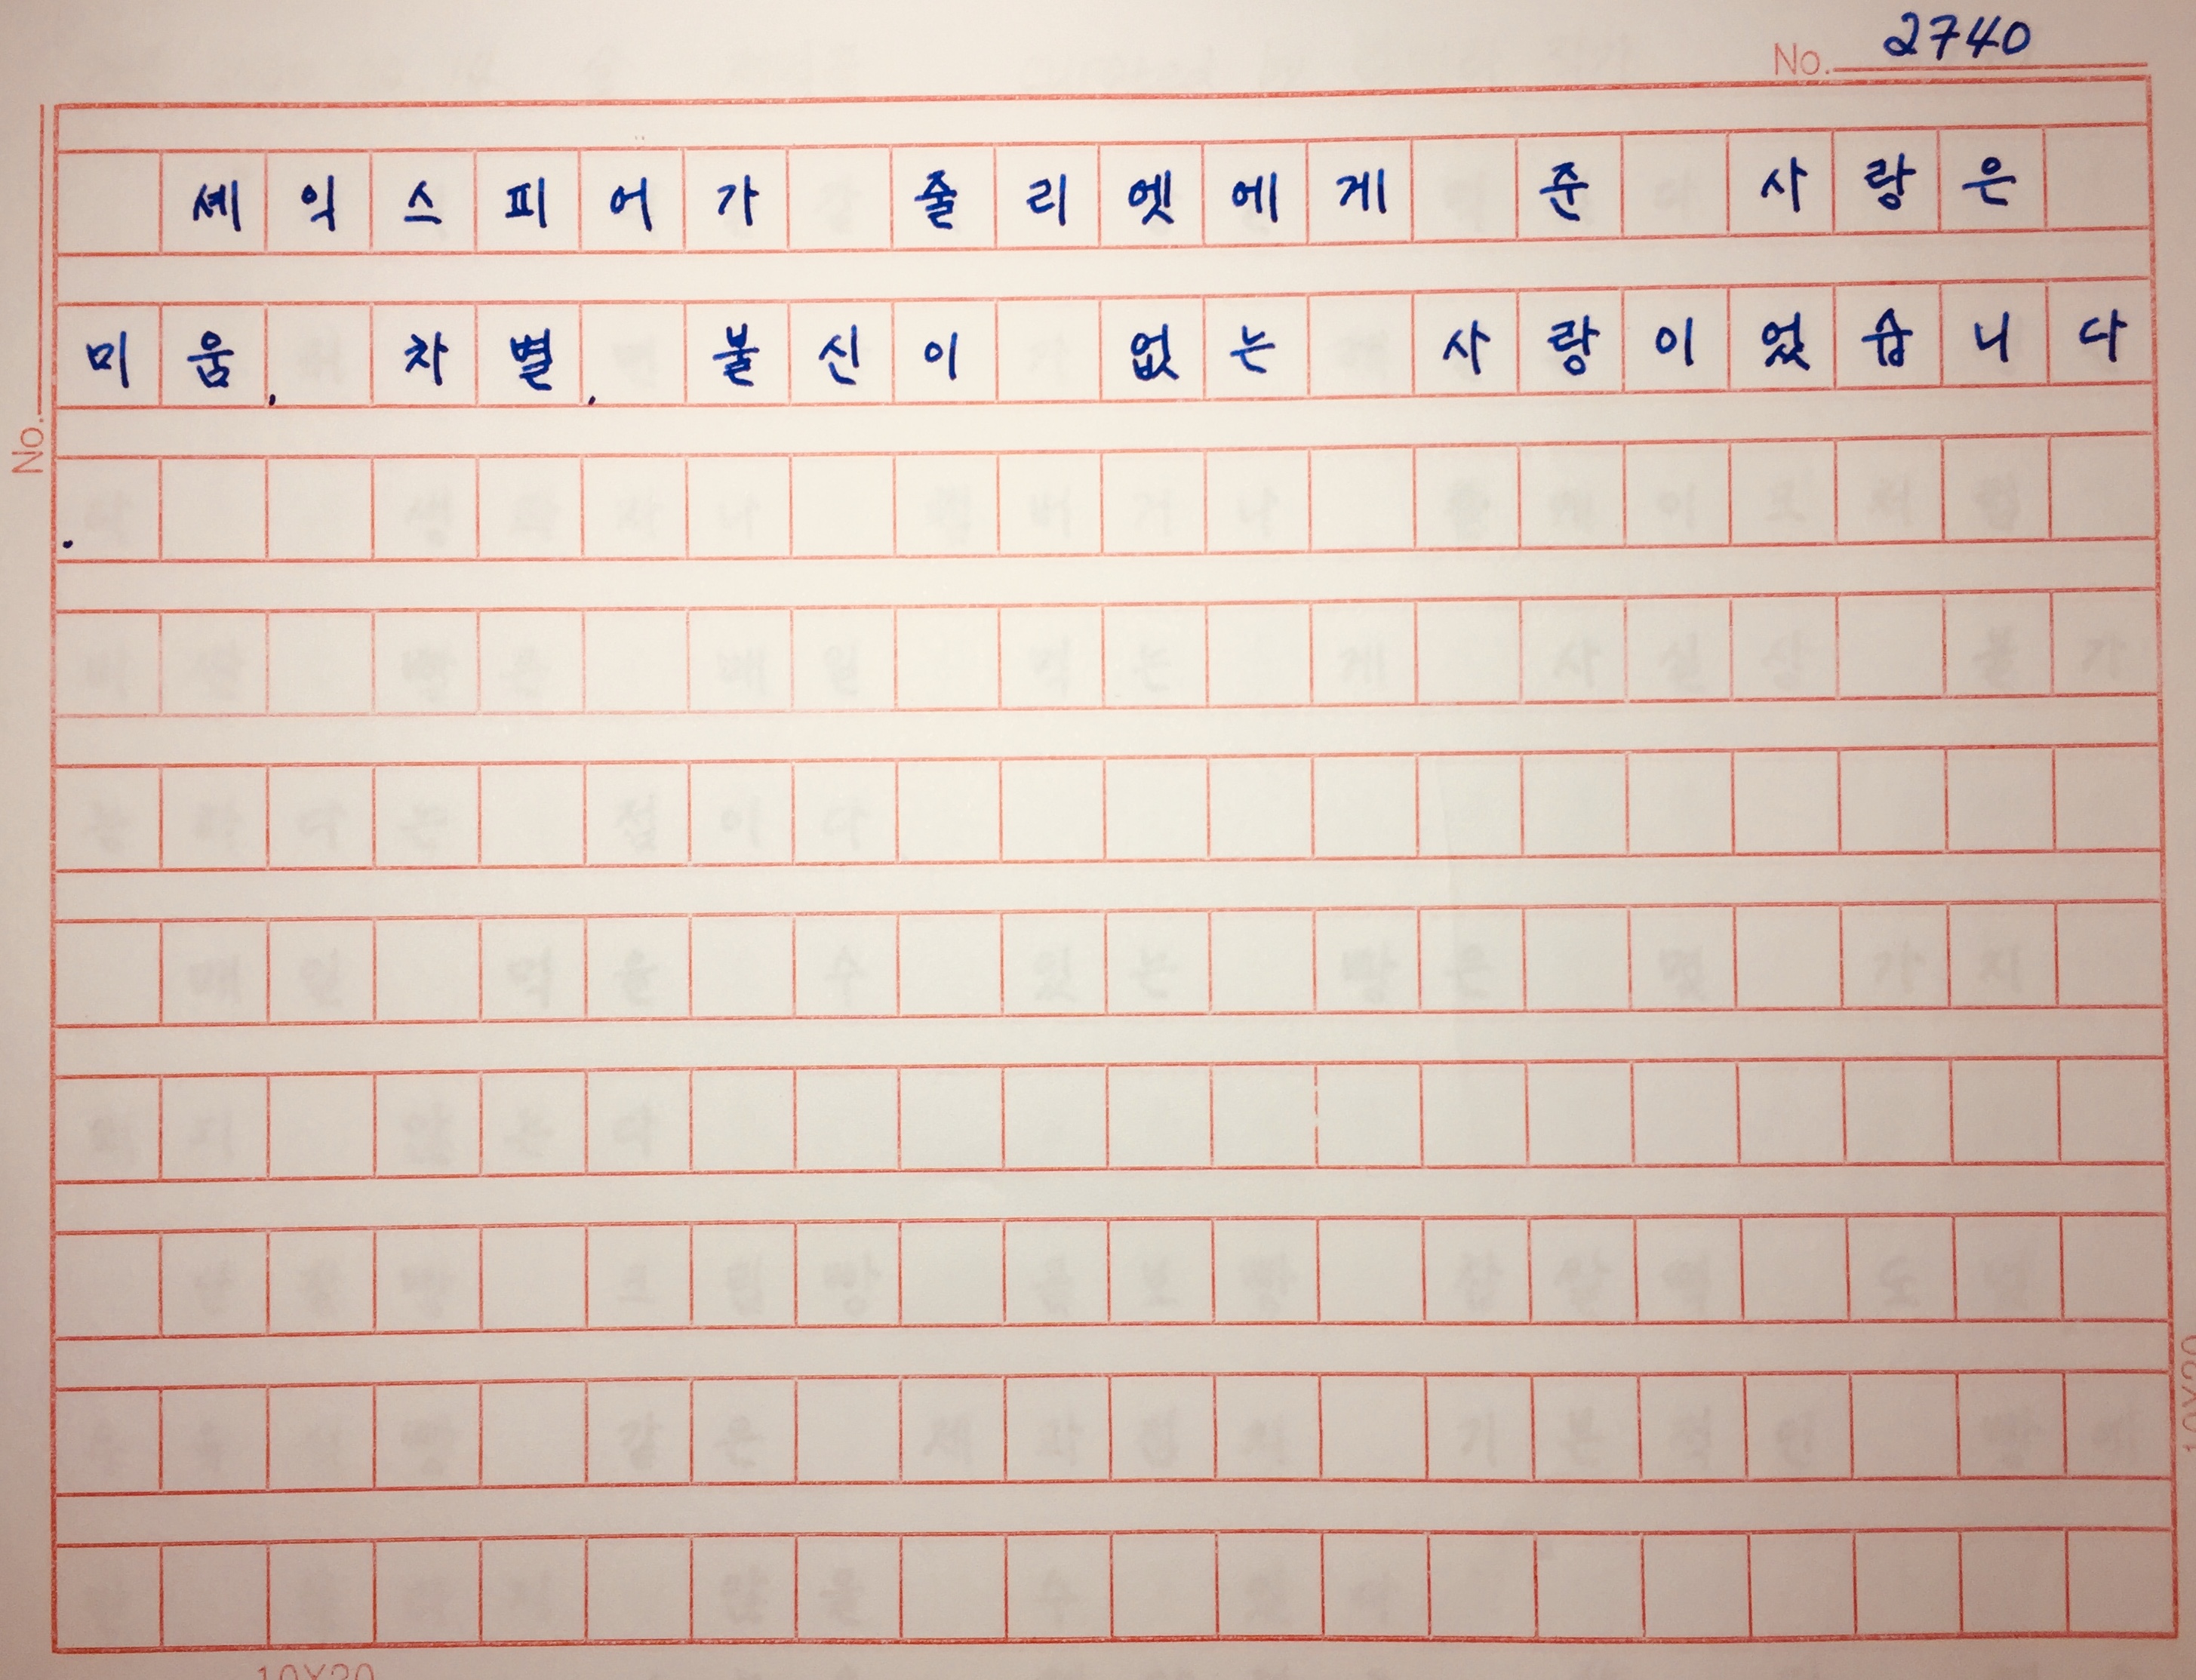 No. 2740
셰익스피어가 줄리엣에게 준 사랑은
미움. 차별. 불신이 없는 사랑이었습니다
.
No.
10X20
10X20